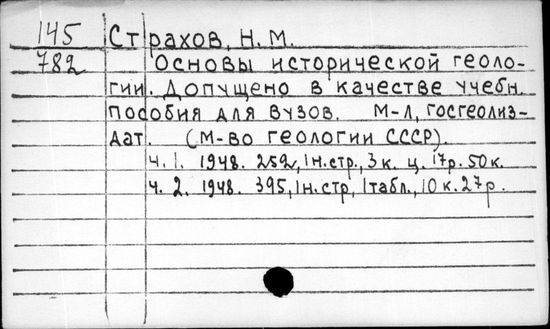 145 Страхов, Н. М.
782 Основы исторической геоло-
гии. Допущено в качестве учебн.
пособия для вузов. М-Л, Госгеолиз-
дат. (М-во геологии СССР).
ч. 1. 1948. 252, 1н.стр., 3 к. ц. 17р. 50к.
ч. 2. 1948. 395, 1н.стр, 1табл., 10 к. 27р.